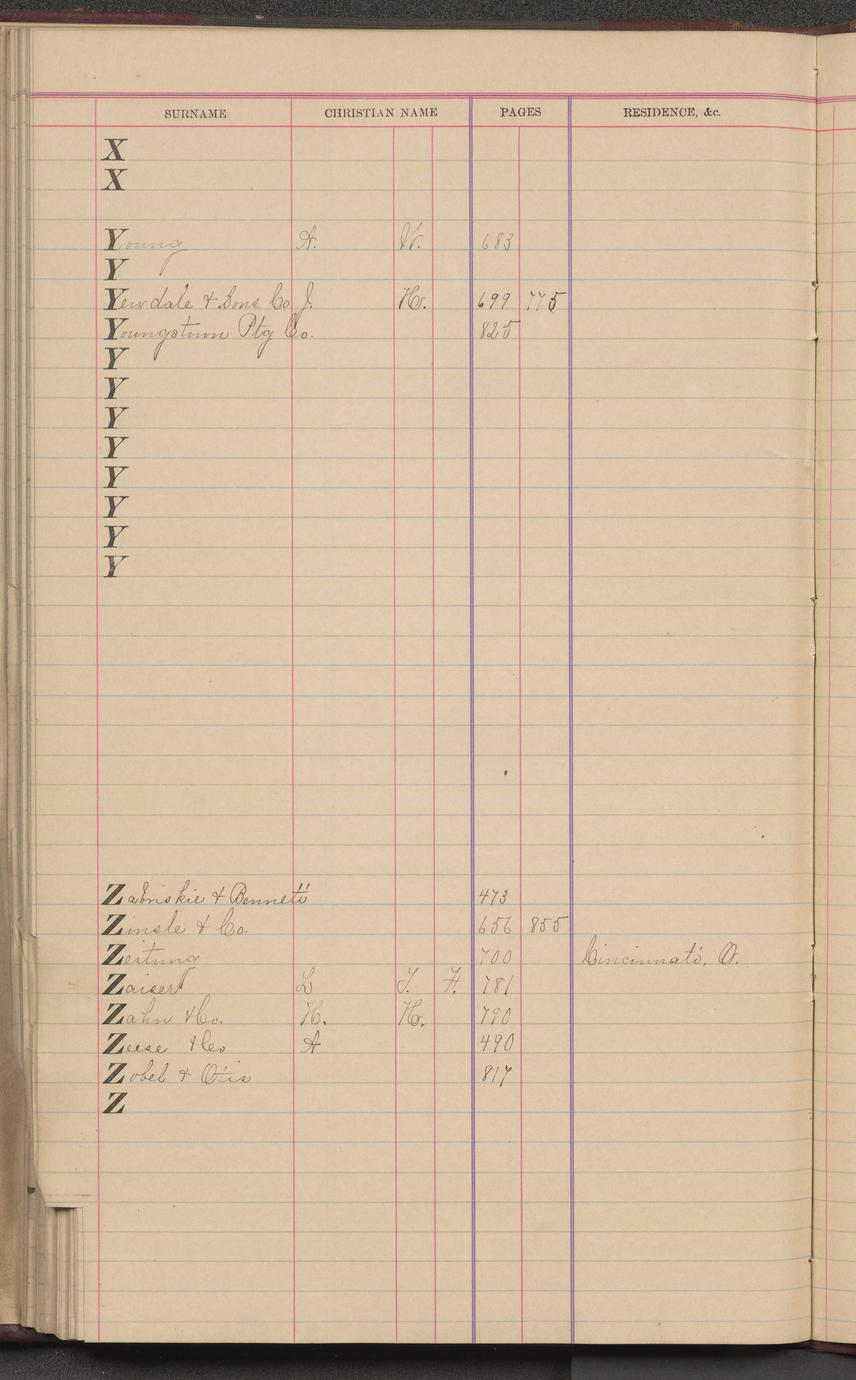 SURNAME CHRISTIAN NAME PAGES RESIDENCE, &c.
X
X
Young A. W. 683
Y
Yewdale & Sons Co J. H. 699 775
Youngstown Ptg Co. 825
Y
Y
Y
Y
Y
Y
Y
Y
Zabriskie & Bennett 473
Zinsle & Co. 656 855
Zeitung 700 Cincinnati, O.
Zaiser L T. F. 781
Zahn & Co. H. H. 790
Zeese & Co A 490
Zobel & Otis 817
Z